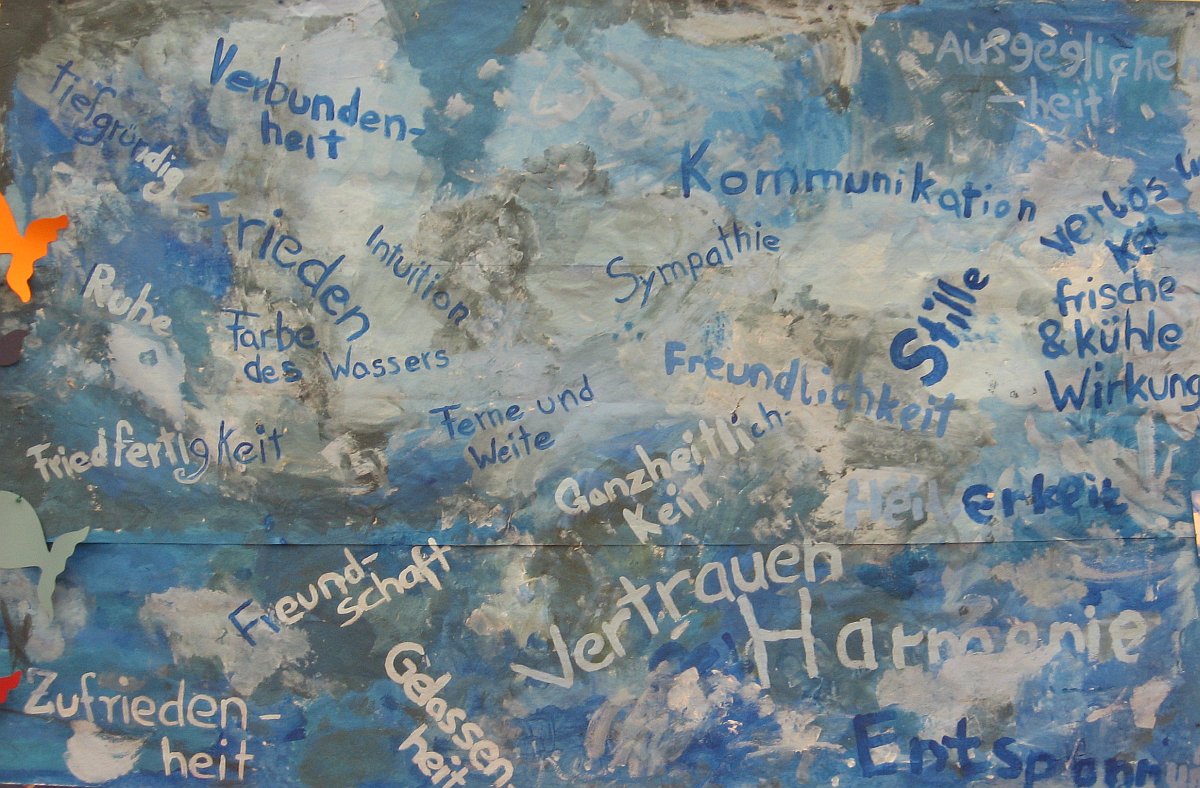 Verbunden-
heit
Ausgegliche
-heit
tiefgründig
Kommunikation
Frieden
Intuition
Sympathie
Ruhe
Stille
frische
& kühle
Wirkung
Farbe
des Wassers
Freundlichkeit
Ferne und
Weite
Friedfertigkeit
Ganzheitlich-
Keit
Heiterkeit
Freund-
schaft
Vertrauen
Harmonie
Gelassen-
heit
Zufrieden-
heit
Entspannu